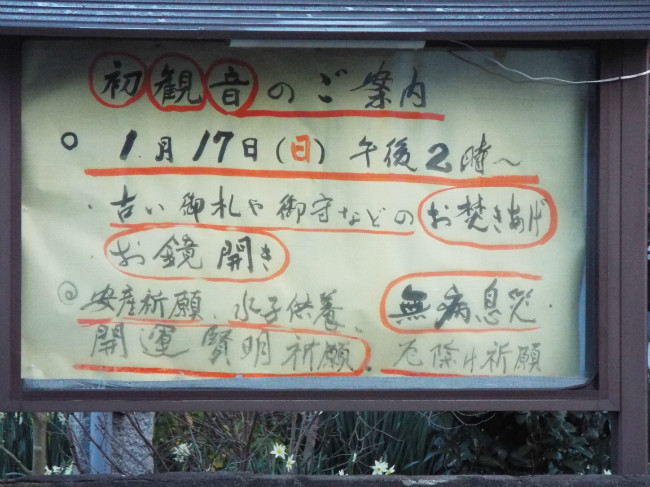 初観音のご案内
○ 1月17日(日)午後2時〜
・古い御札や御守などのお焚きあげ
お鏡開き
◎安産祈願、水子供養、無病息災・
開運賢明祈願、厄除け祈願